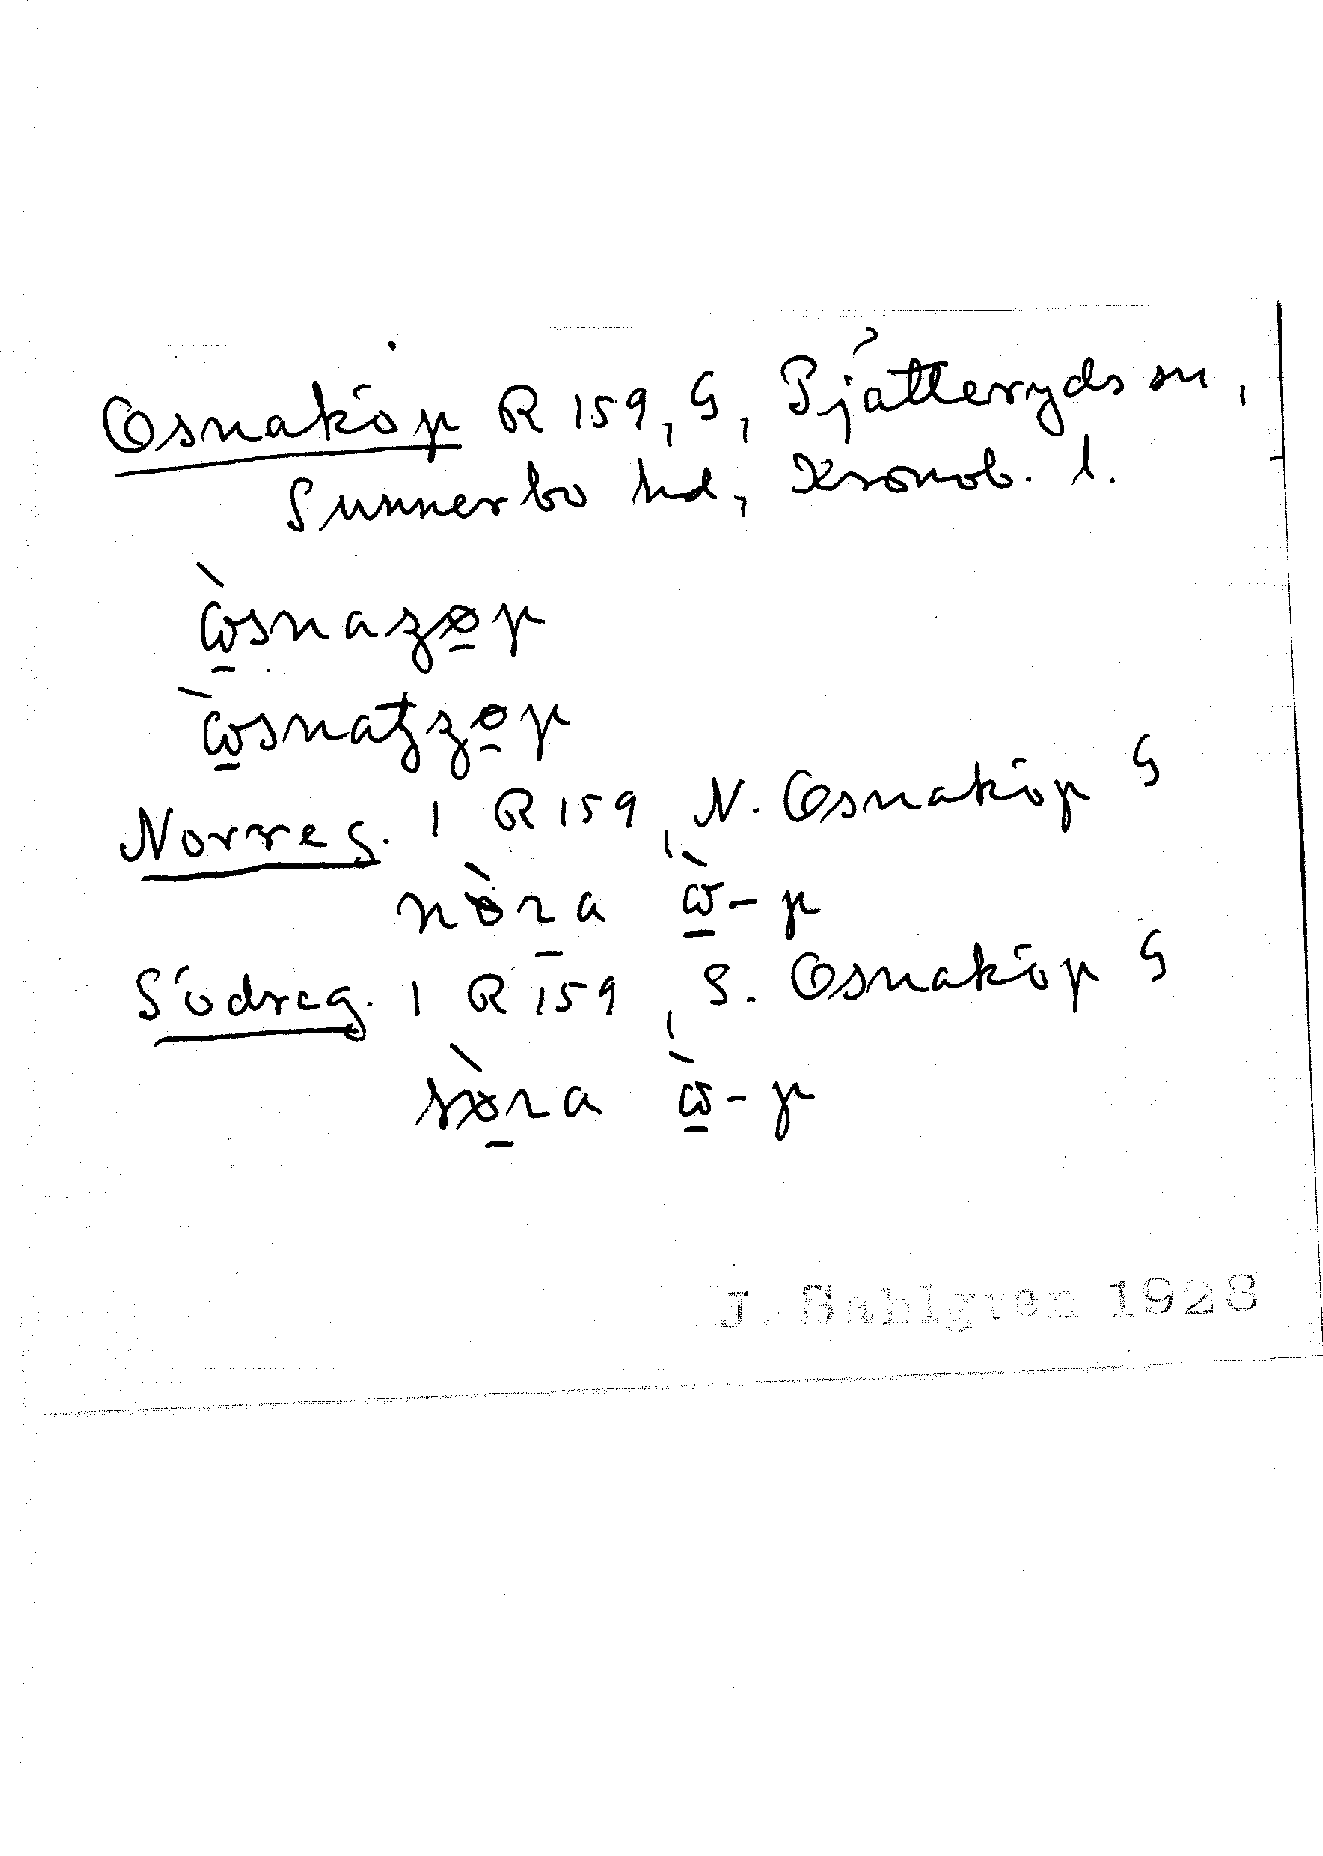 Osnaköp R 159, G, Pjätteryds sn,
Sunnerbo hd, Kronob. l.
ὼsnazøp
ὼsnatzøp
Norreg. 1 R 159, N. Osnaköp G
nòra ὼ-p
Södreg. 1 R 159, S. Osnaköp G
sø̀ra ὼ-p
J. Sahlgren 1928